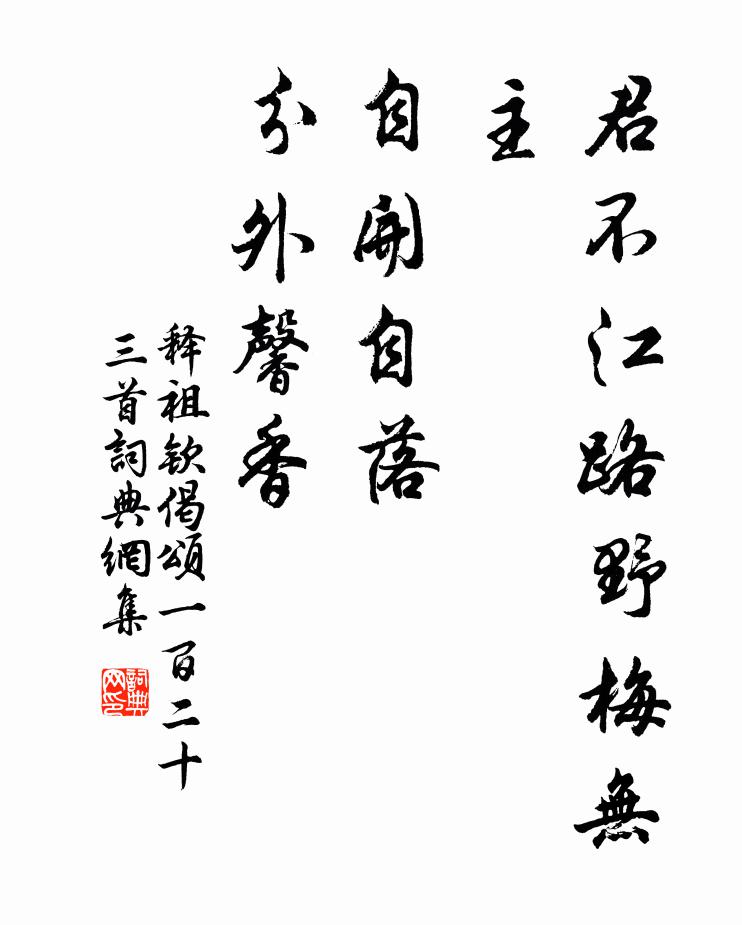 君不江路野梅無
主
自開自落
分外馨香
释祖欽偈頌一百二十
三首詞典網集
詞典网印